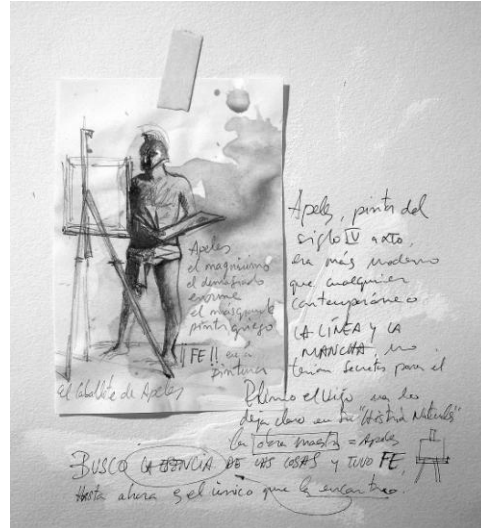 Apeles
el magnísimo
el demasiado
enorme
el más grande
pintor griego
¡¡FE!! en la
pintura
el caballete de Apeles
Apeles, pintor del
siglo IV a XTO,
era más moderno
que cualquier
contemporáneo
LA LÍNEA Y LA
MANCHA, no
tenían secretos para el
Plinio el Viejo nos lo
deja claro en su "Historia Natural"
la obra maestra = Apeles
BUSCO LA ESENCIA DE LAS COSAS Y TUVO FE,
Hasta ahora es el único que la encontró.